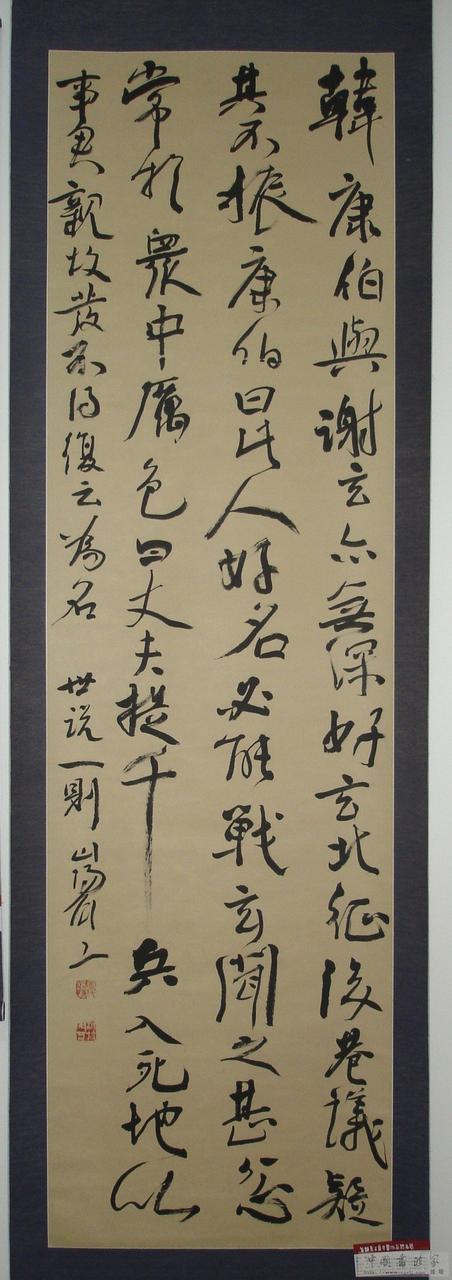 韓康伯與謝玄亦無深好玄北征後巷議疑
其不振康伯曰此人好名必能戰玄聞之甚忿
常於眾中厲色曰丈夫提千兵入死地以
事君親故發不得復云為名 世說一則